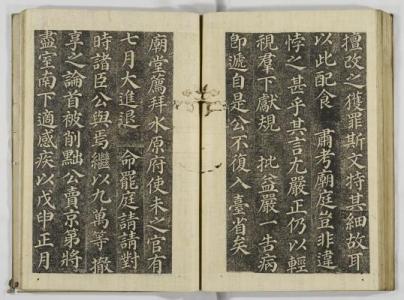 擅改之獲罪斯文持其細故耳
以此配食　肅考廟庭豈非違
悖之甚乎其言尤嚴正仍以輕
視羣下獻規　批益嚴一告病
卽遞自是公不復入臺省矣
廟堂薦拜水原府使未之官有
七月大進退　命罷庭請請對
時諸臣公與焉繼以九萬等撤
享之論首被削黜公賣京第將
盡室南下適感疾以戊申正月